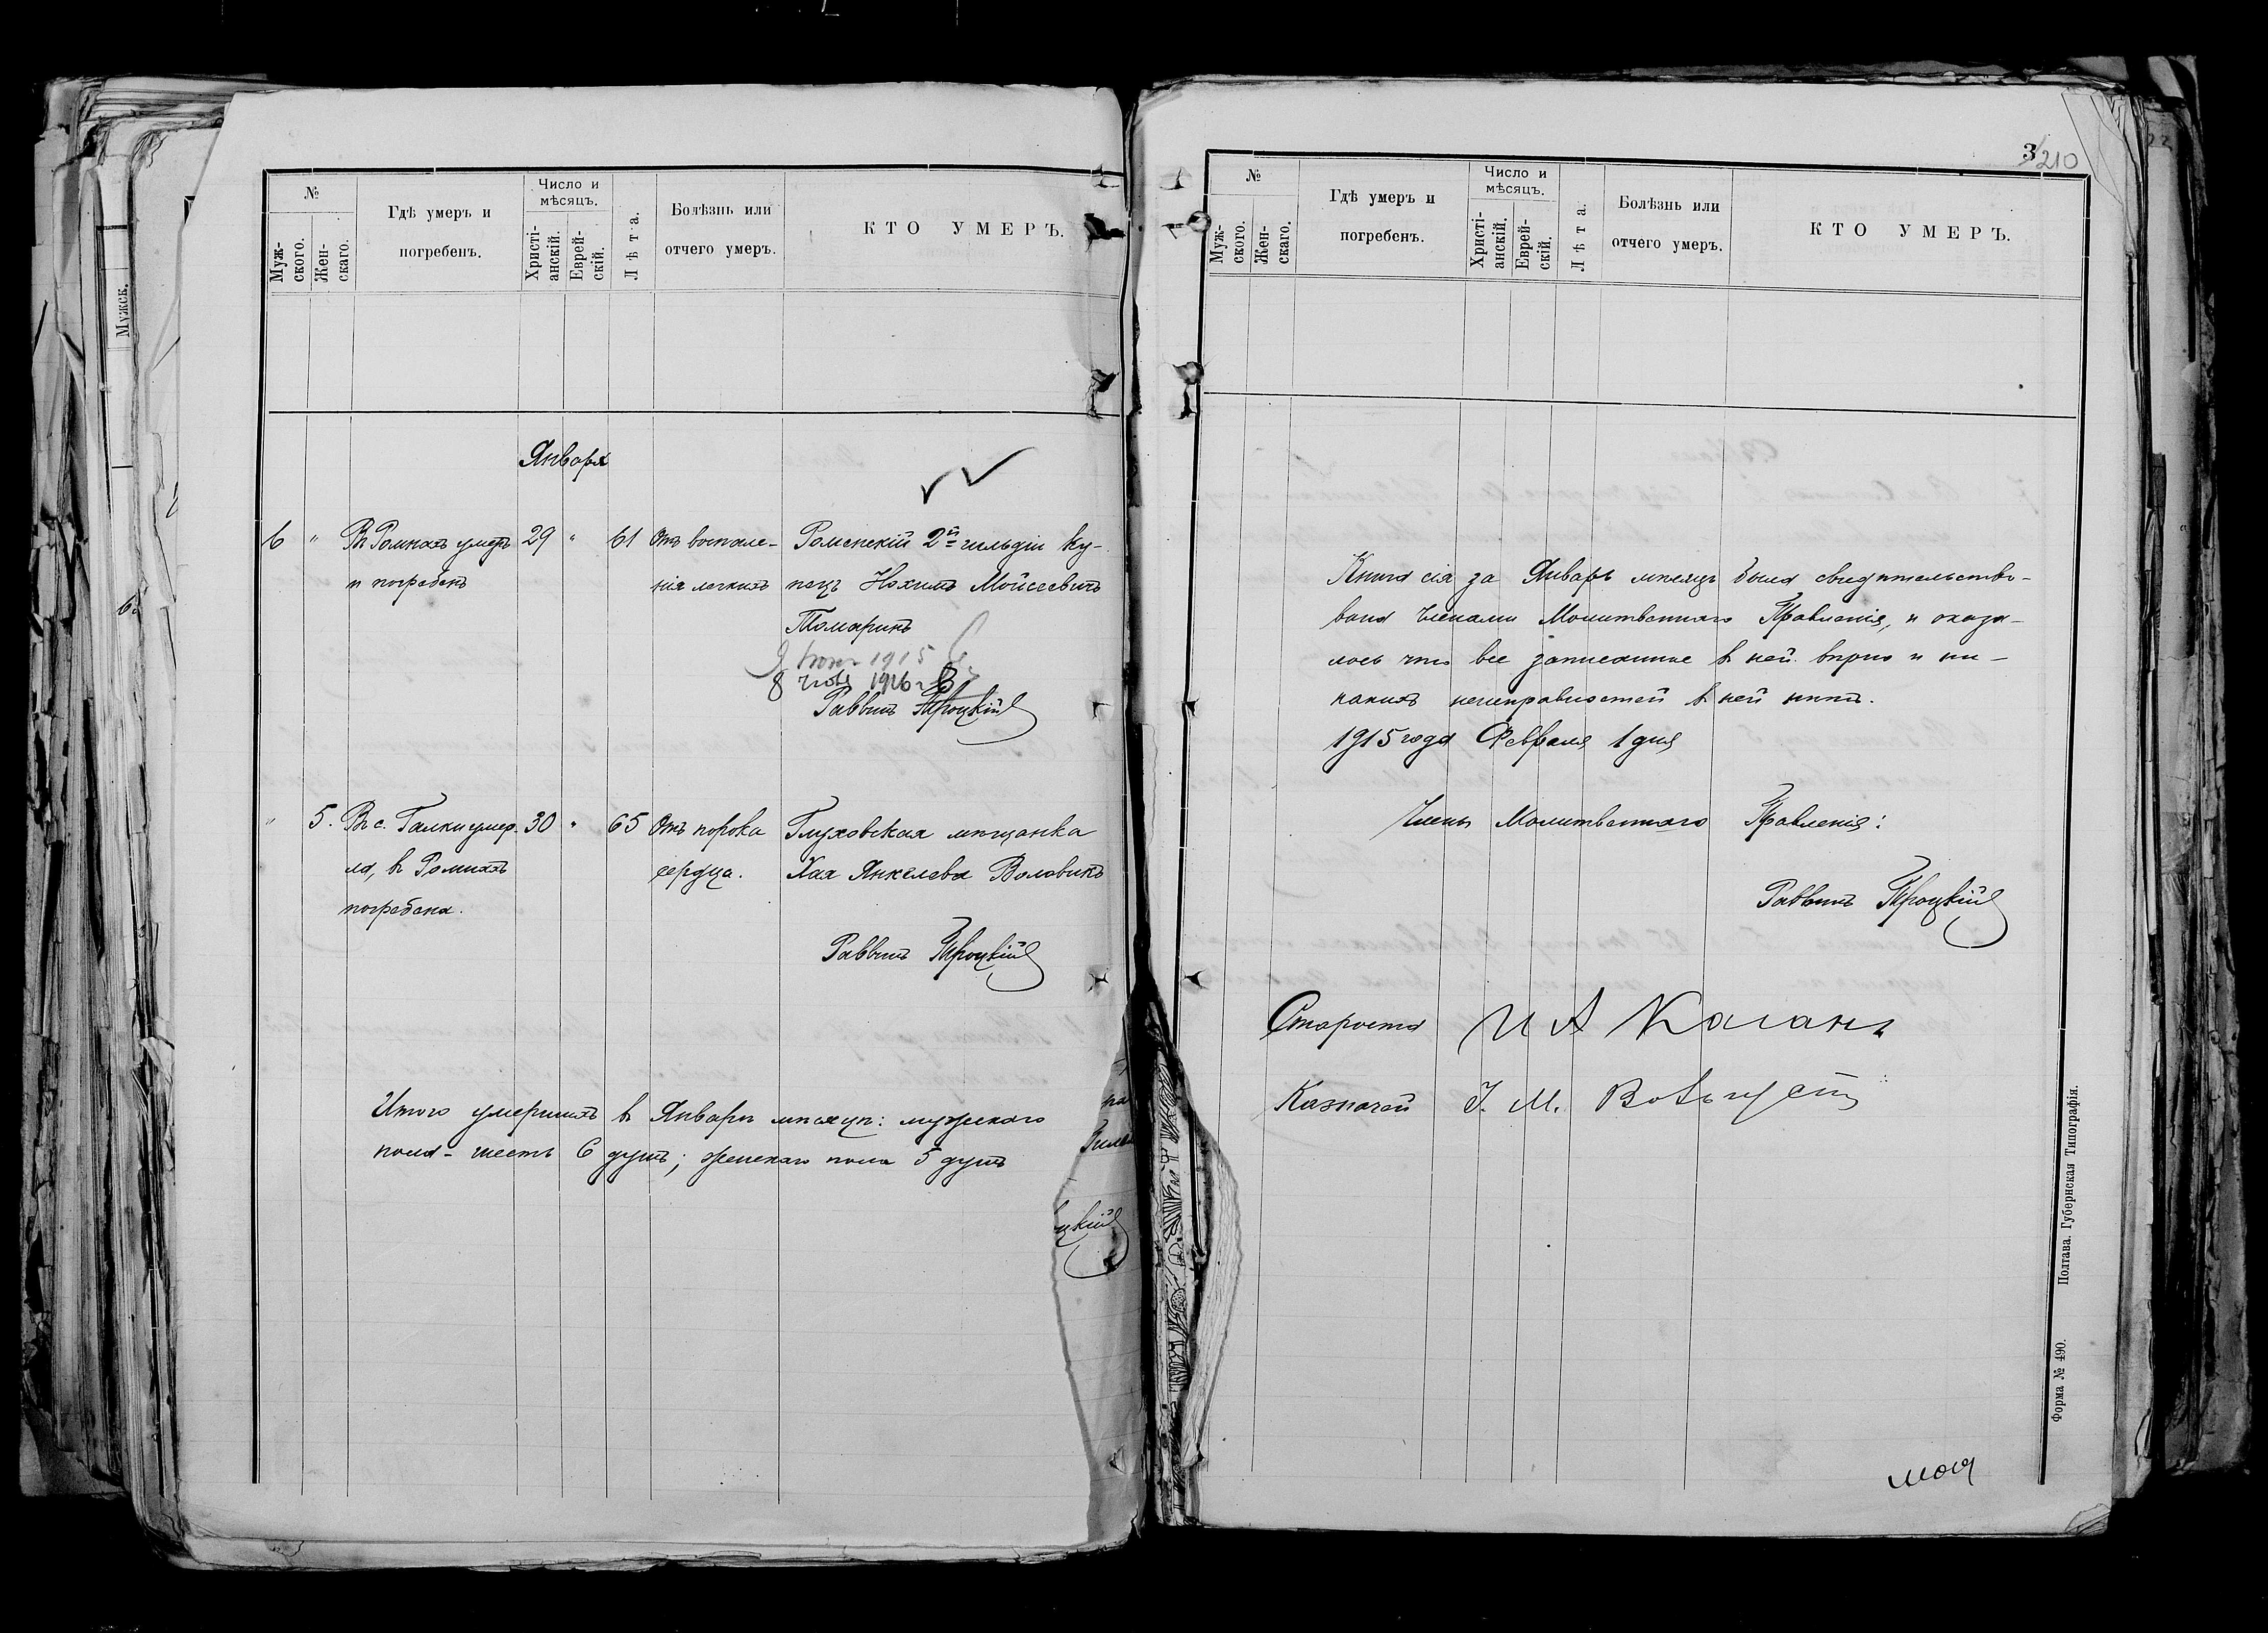 №
Муж-
ского.
Жен-
скаго.
Гдѣ умеръ и
погребенъ.
Число и
мѣсяцъ.
Христі-
анскій.
Еврей-
скій.
Лѣта.
Болѣзнь или
отчего умеръ.
КТО УМЕРЪ.
Января
6 " Въ Ромнахъ умеръ 29 " 61 Отъ воспале- Роменскій 2й гильдіи ку-
и погребенъ нія легкихъ пецъ Нохимъ Мойсеевичъ
Томаринъ
1915
8 1916 г
Раввинъ Троцкій
" 5. Въ с. Галки умер- 30 " 65 Отъ порока Глуховская мѣщанка
ла, въ Ромнахъ сердца. Хая Янкелева Воловикъ
погребена.
Раввинъ Троцкій
Итого умершихъ въ Январѣ мѣсяцѣ: мужскаго
пола - шесть 6 душъ; женскаго пола 5 душъ
цкій
Мужск.
3
210
№
Муж-
ского.
Жен-
скаго.
Гдѣ умеръ и
погребенъ.
Число и
мѣсяцъ.
Христі-
анскій.
Еврей-
скій.
Лѣта.
Болѣзнь или
отчего умеръ.
КТО УМЕРЪ.
Книга сія за Январь мѣсяцъ была свидѣтельство-
вана Членами Молитвеннаго Правленія, и оказа-
лось что все записанное въ ней вѣрно и ни-
какихъ неисправностей въ ней нѣтъ.
1915 года Февраля 1 дня
Члены Молитвеннаго Правленія:
Раввинъ Троцкій
Староста И А Каганъ
Казначей І. М.
Форма № 490. Полтава. Губернская Типографія.